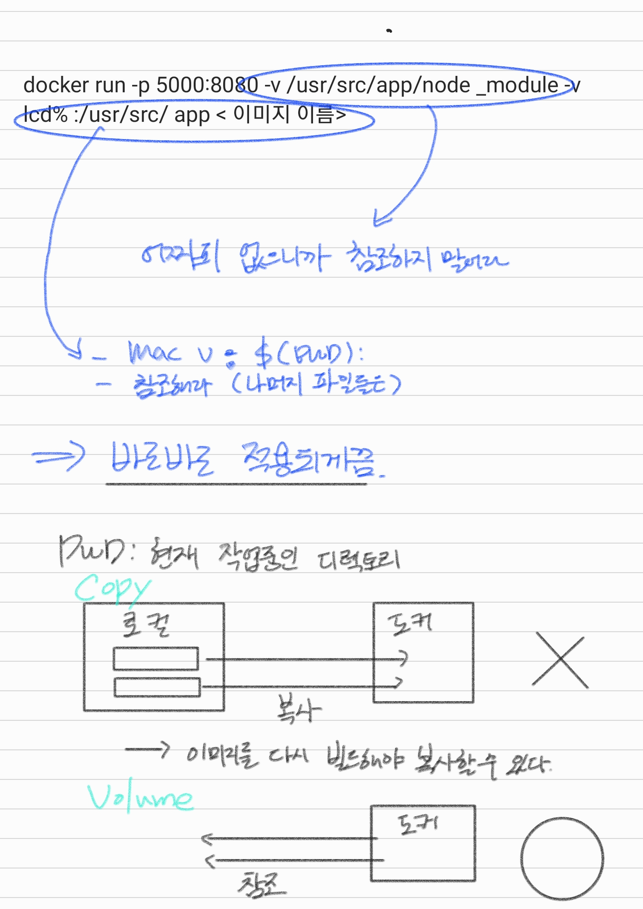 docker run -p 5000:8080 -v /usr/src/app/node _module -v
lcd% :/usr/src/ app < 이미지 이름>
어짜피 없으니까 참조하지 말어라
- Mac v : $(PWD):
- 참조해라 (나머지 파일들은)
⇒ 바로바로 적용되게끔.
PWD : 현재 작업중인 디렉토리
Copy
로컬 도커
복사
→ 이미지를 다시 빌드해야 복사할 수 있다.
Volume
도커
참조